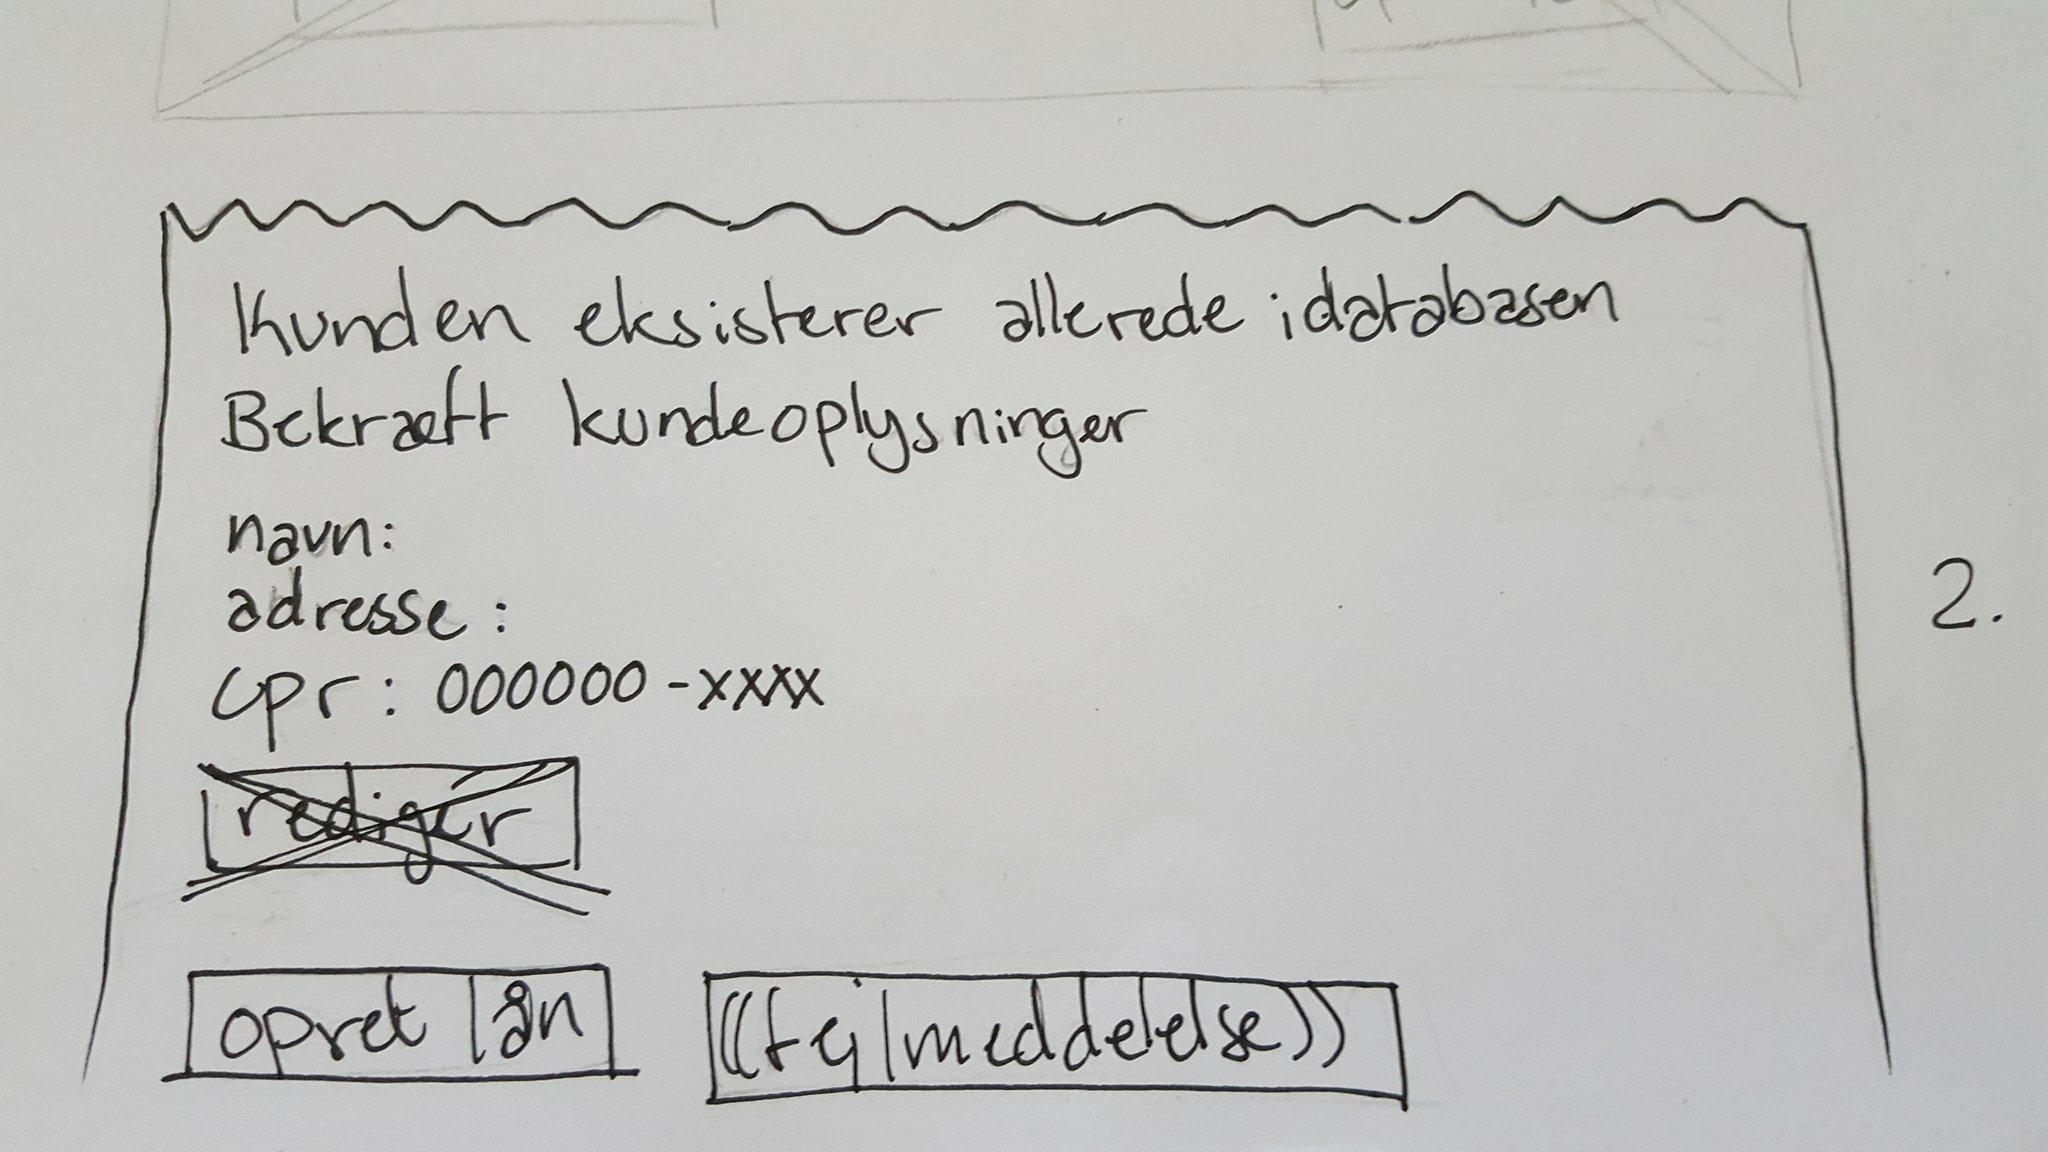 Kunden eksisterer allerede i databasen
Bekræft kundeoplysninger
navn:
adresse:
2.
cpr: 000000-xxxx
rediger
opret lån
((fejlmeddelelse))